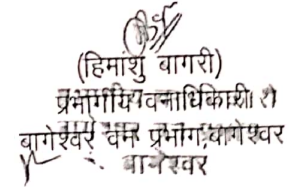 (हिमांशु बागरी)
प्रभागीय वनाधिकारी
बागेश्वर वन प्रभाग, बागेश्वर
बागेश्वर